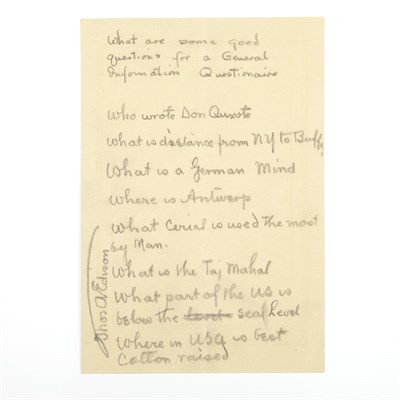 What are some good
questions for a General
Information Questionaire
Who wrote Don Quixote
What is distance from NY to Buff
What is a German Mind
Where is Antwerp
What Cerial is used the most
by Man.
What is the Taj Mahal
What part of the US is
below the sea level
Where in USA is best
Cotton raised
Thos A Edison